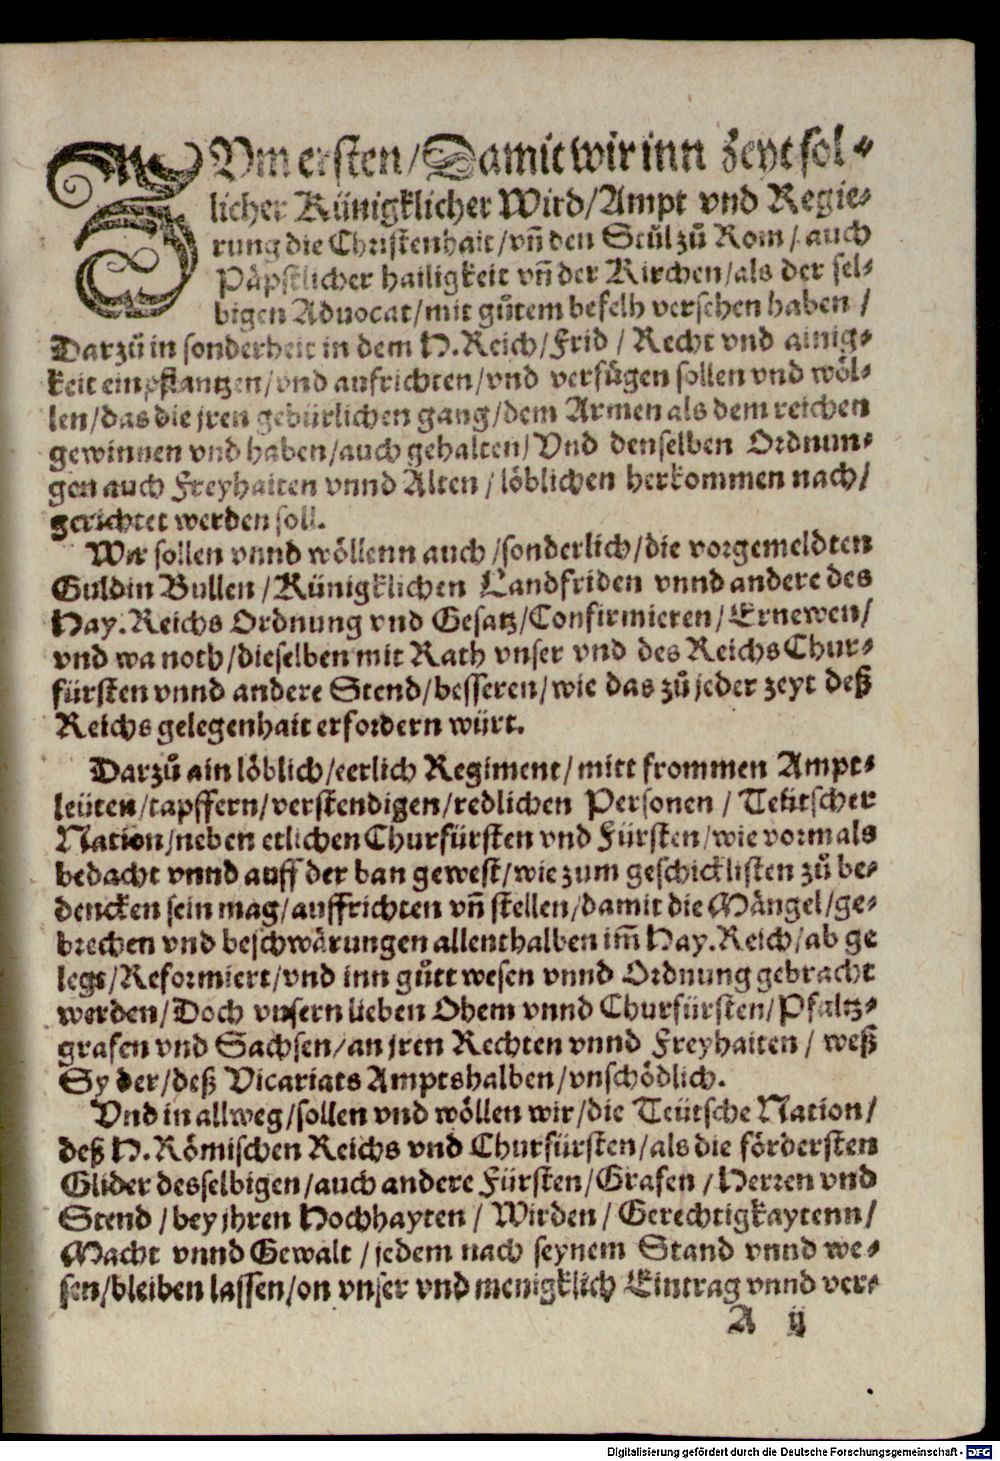 ZVm ersten/Damit wir inn zeyt sol⸗
licher Künigklicher Wird/Ampt vnd Regie⸗
rung die Christenhait/vn̄ den Stůl zů Rom/auch
Päpstlicher hailigkeit vn̄ der Kirchen/als der sel⸗
bigen Aduocat/mit gůtem befelh versehen haben/
Darzů in sonderheit in dem H.Reich/Frid/Recht vnd ainig⸗
keit einpflantzen/vnd aufrichten/vnd verfůgen sollen vnd wöl⸗
len/das die jren gebürlichen gang/dem Armen als dem reichen
gewinnen vnd haben/auch gehalten/Vnd denselben Ordnun⸗
gen auch Freyhaiten vnnd Alten/löblichen herkommen nach/
gerichtet werden soll.
Wir sollen vnnd wöllenn auch/sonderlich/die vorgemeldten
Guldin Bullen/Künigklichen Landfriden vnnd andere des
Hay.Reichs Ordnung vnd Gesatz/Confirmieren/Ernewen/
vnd wa noth/dieselben mit Rath vnser vnd des Reichs Chur⸗
fürsten vnnd andere Stend/besseren/wie das zů jeder zeyt deß
Reichs gelegenhait erfordern würt.
Darzů ain löblich/eerlich Regiment/mitt frommen Ampt⸗
leüten/tapffern/verstendigen/redlichen Personen/Teütscher
Nation/neben etlichen Churfürsten vnd Fürsten/wie vormals
bedacht vnnd auff der ban gewest/wie zum geschicklisten zů be⸗
dencken sein mag/auffrichten vn̄ stellen/damit die Mängel/ge⸗
brechen vnd beschwärungen allenthalben im̄ Hay.Reich/ab ge
legt/Reformiert/vnd inn gůtt wesen vnnd Ordnung gebracht
werden/Doch vnsern lieben Ohem vnnd Churfürsten/Pfaltz⸗
grafen vnd Sachsen/an jren Rechten vnnd Freyhaiten/weß
Sy der/deß Vicariats Amptshalben/vnschödlich.
Vnd in allweg/sollen vnd wöllen wir/die Teütsche Nation/
deß H.Römischen Reichs vnd Churfürsten/als die fördersten
Glider desselbigen/auch andere Fürsten/Grafen/Herren vnd
Stend/bey jhren Hochhayten/Wirden/Gerechtigkaytenn/
Macht vnnd Gewalt/jedem nach seynem Stand vnnd we⸗
sen/bleiben lassen/on vnser vnd menigklich Eintrag vnnd ver⸗
A ij
Digitalisierung gefördert durch die Deutsche Forschungsgemeinschaft - DFG